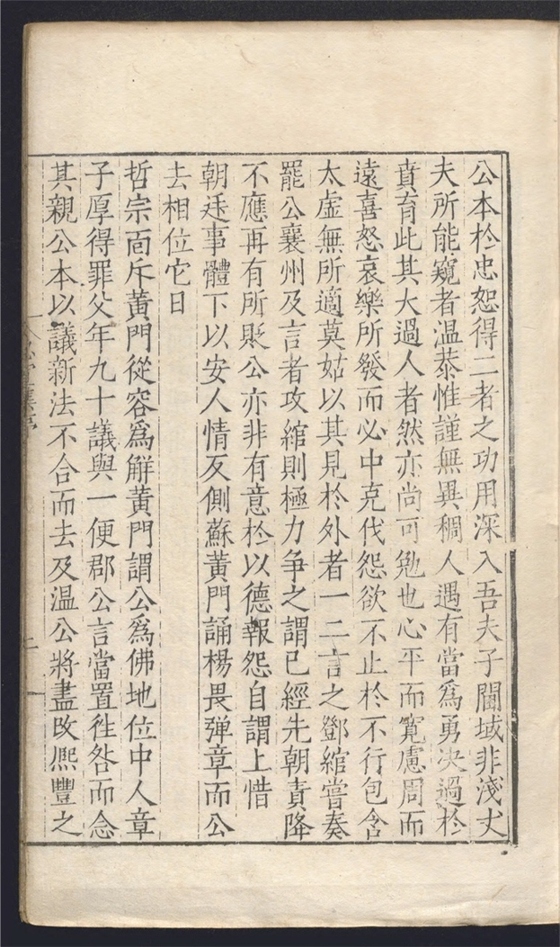 公本於忠恕得二者之功用深入吾夫子閫域非淺丈
夫所能窺者溫恭惟謹無異稠人遇有當爲勇決過於
賁育此其大過人者然亦尚可勉也心平而寬慮周而
遠喜怒哀樂所發而必中克伐怨欲不止於不行包含
太虛無所適莫姑以其見於外者一二言之鄧綰嘗奏
罷公襄州及言者攻綰則極力爭之謂已經先朝責降
不應再有所貶公亦非有意於以德報怨自謂上惜
朝廷事體下以安人情反側蘇黃門誦楊畏彈章而公
去相位它日
哲宗面斥黃門從容爲解黃門謂公爲佛地位中人章
子厚得罪父年九十議與一便郡公言當置徃咎而念
其親公本以議新法不合而去及溫公將盡改熈豐之